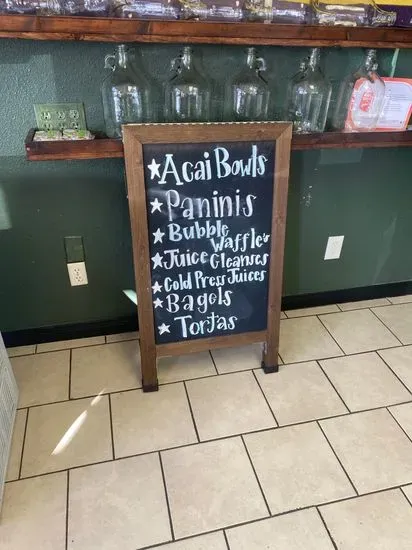 ★ Acai Bowls
★ Paninis
★ Bubble Waffle's
★ Juice Cleanses
★ Cold Press Juices
★ Bagels
★ Tortas